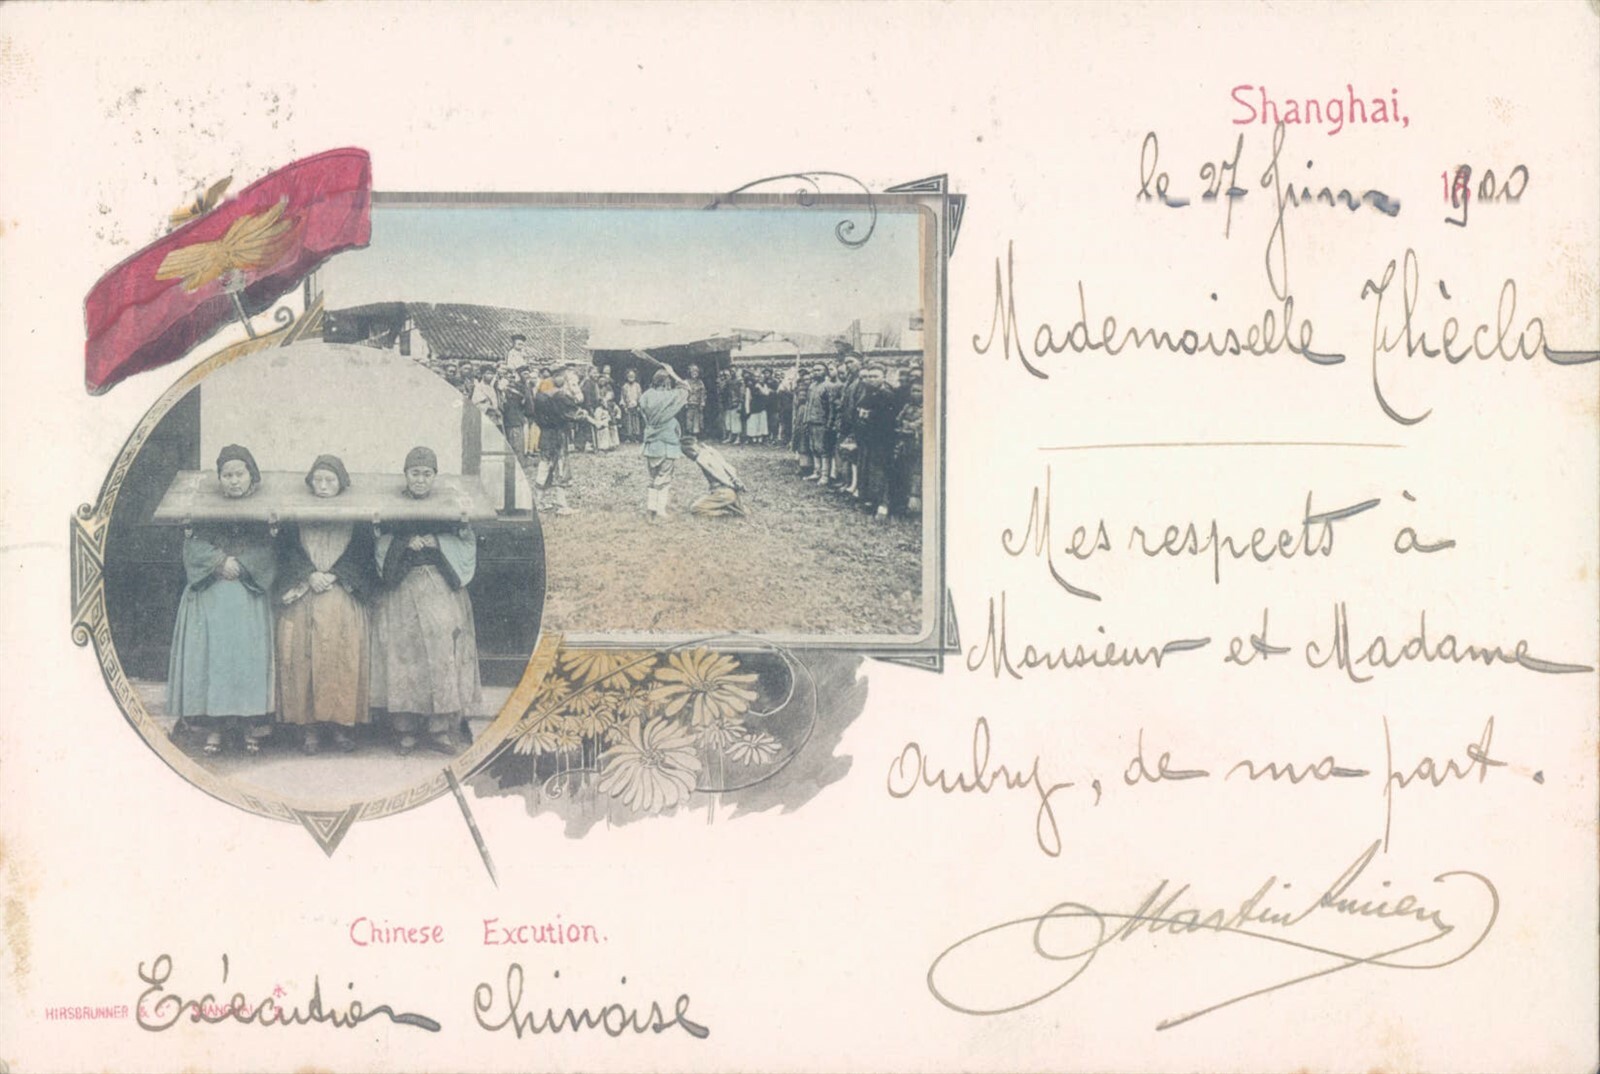 Shanghai,
le 27 Juin 1900
Mademoiselle Thècla
Mes respects à
Monsieur et Madame
Aubry, de ma part.
Martin
Chinese Excution.
Exécution Chinoise
HIRSBRUNNER & Co SHANGHAI